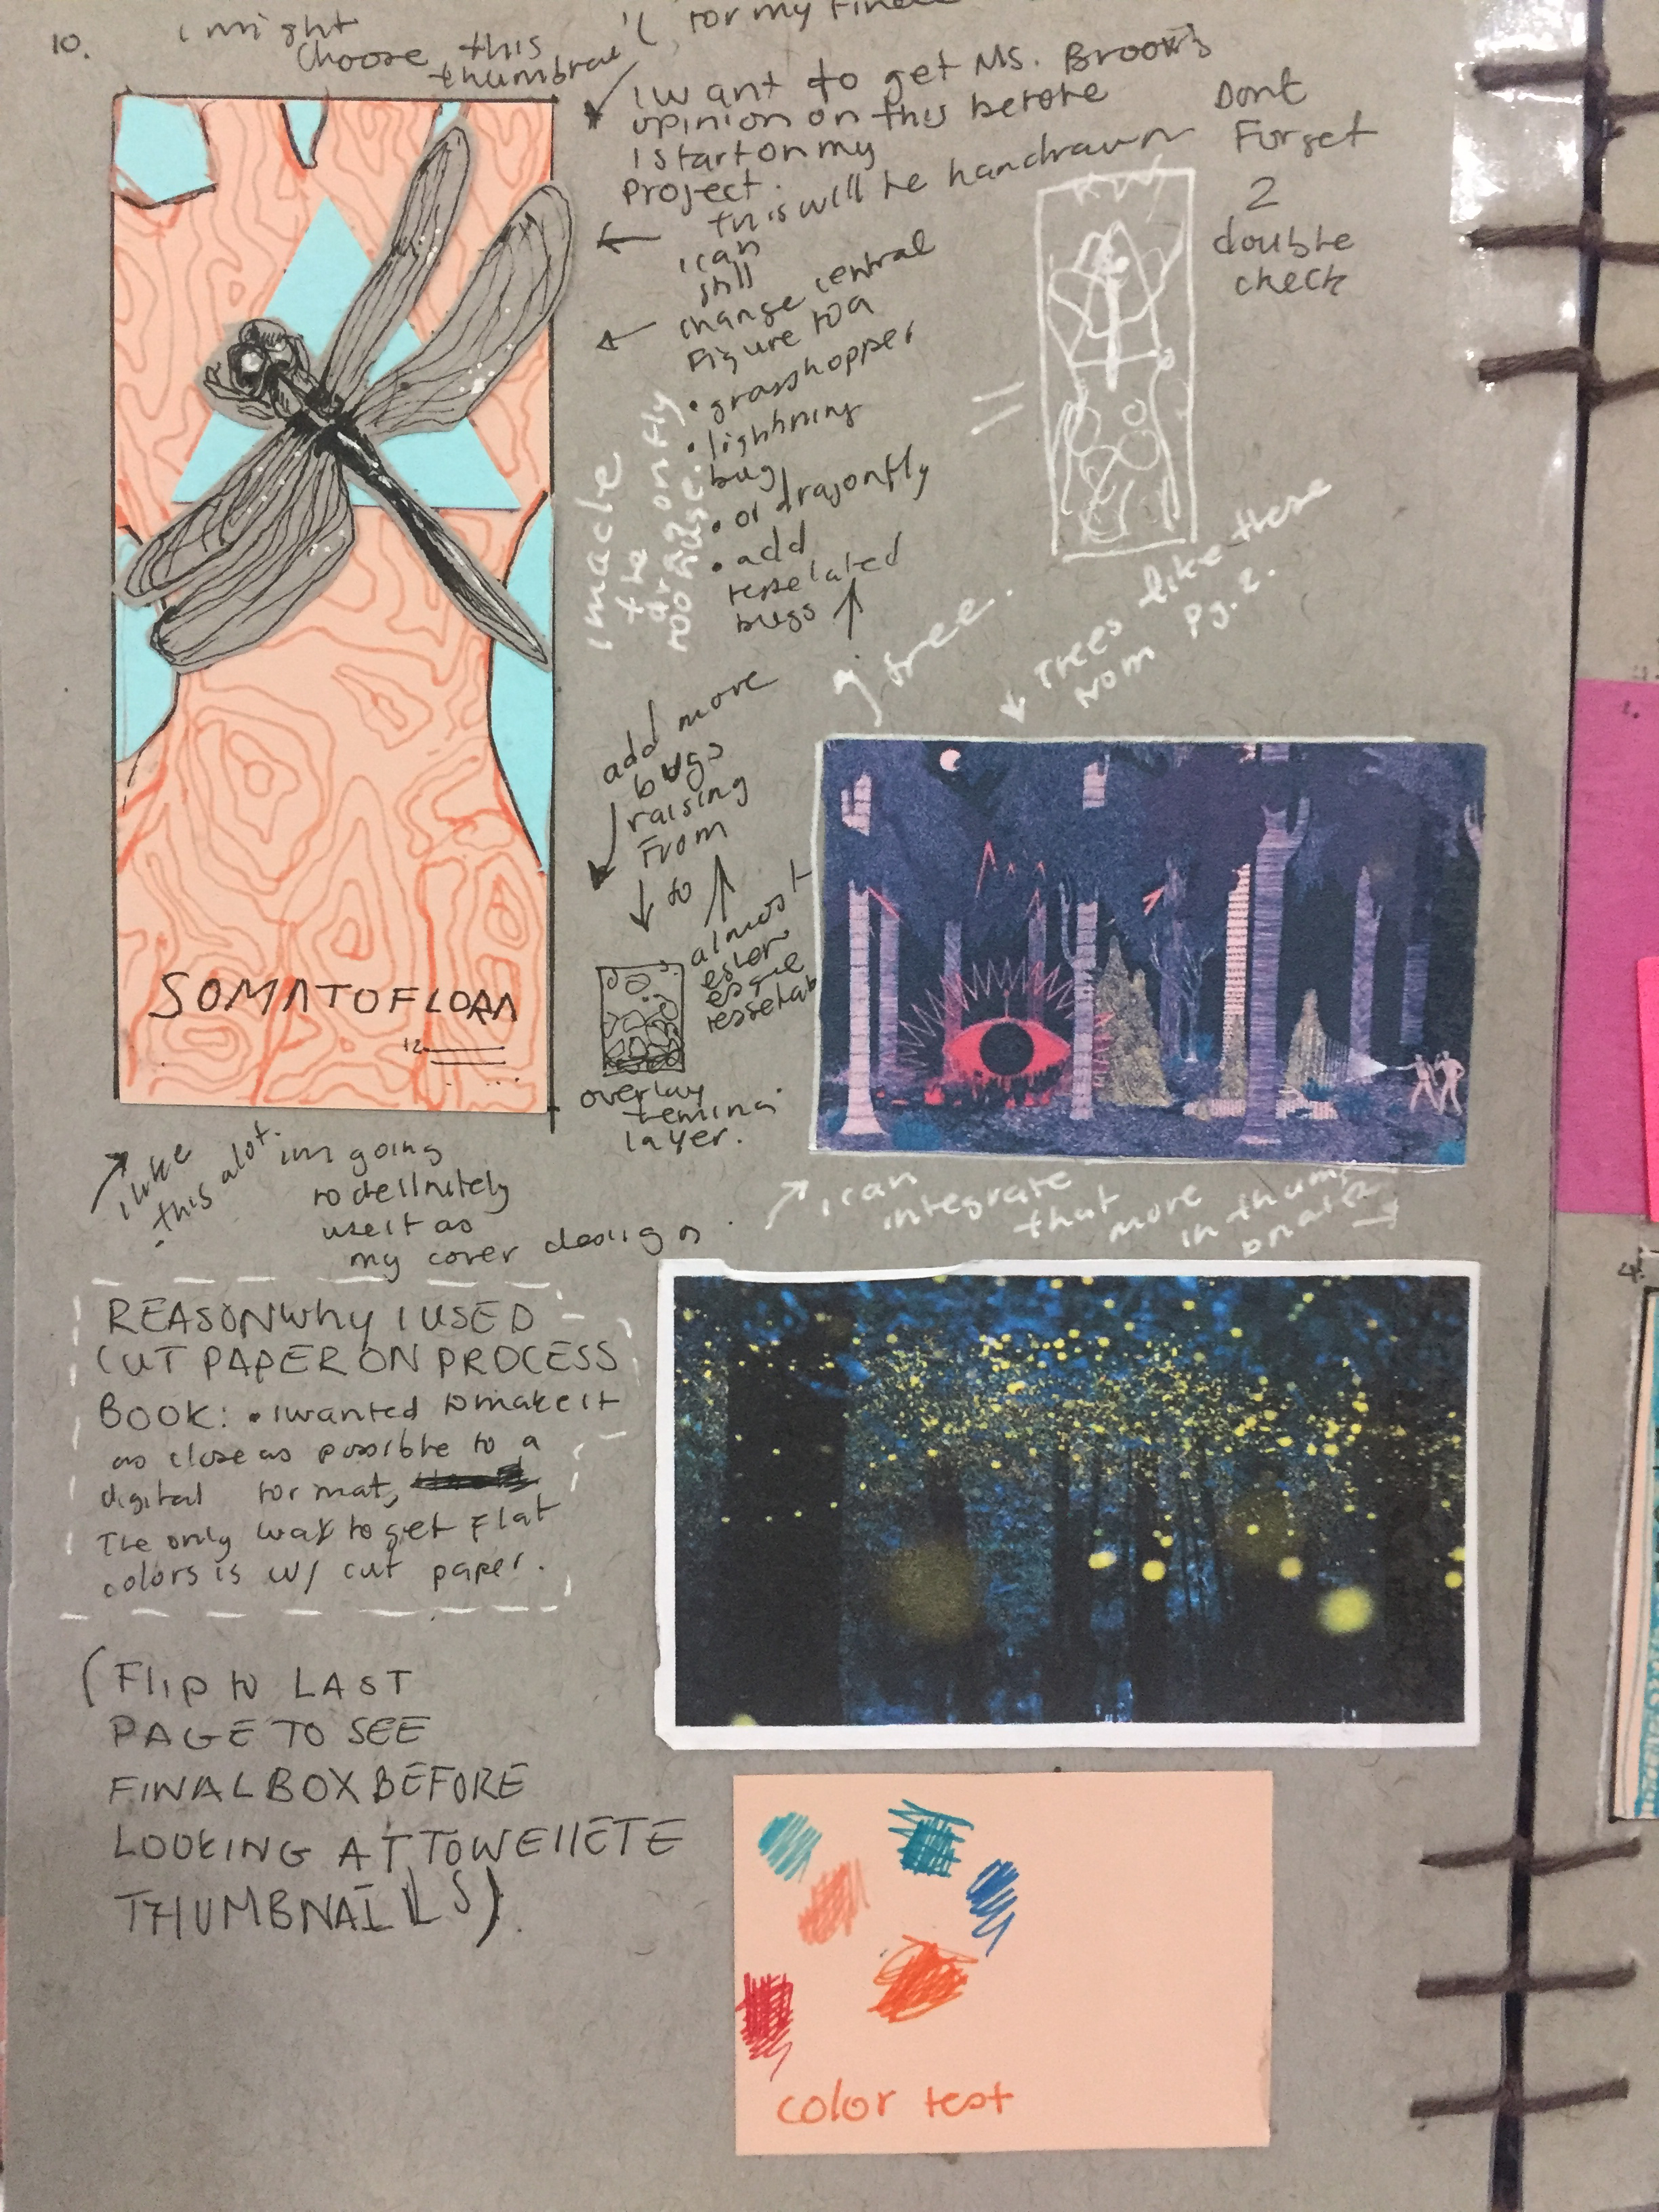 10.
i might
choose this
thumbnail
for my
I want to get Ms. Brooks
opinion on this before
I start on my
project.
Dont
Forget
2
double
check
this will be handrawn
i can
still
change central
Figure to a
• grasshopper
• lightning
bug
• or dragonfly
• add
bugs
=
i made
the
dragonfly
too
tree.
Trees like these
from pg. 2.
add more
bugs
raising
From
to
almost
overlay
layer.
SOMATOFLORA
12
i like
this alot. im going
to definitely
use it as
my cover design
i can
integrate
that more
in
REASON Why I USED
CUT PAPER ON PROCESS
BOOK: • I wanted to make it
as close as possible to a
digital format,
The only way to get Flat
colors is w/ cut paper.
(Flip to LAST
PAGE TO SEE
FINAL BOX BEFORE
LOOKING AT TOWELLETE
THUMBNAILS).
color test